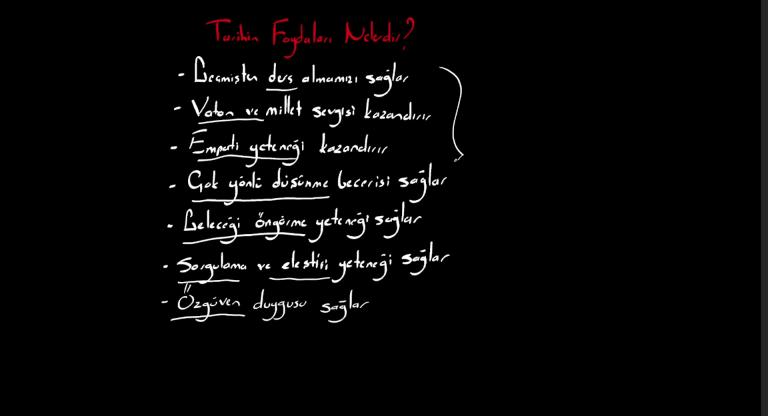 Tarihin Faydaları Nelerdir?
- Geçmişten ders almamızı sağlar
- Vatan ve millet sevgisi kazandırır
- Empati yeteneği kazandırır
- Çok yönlü düşünme becerisi sağlar
- Geleceği öngörme yeteneği sağlar
- Sorgulama ve eleştiri yeteneği sağlar
- Özgüven duygusu sağlar